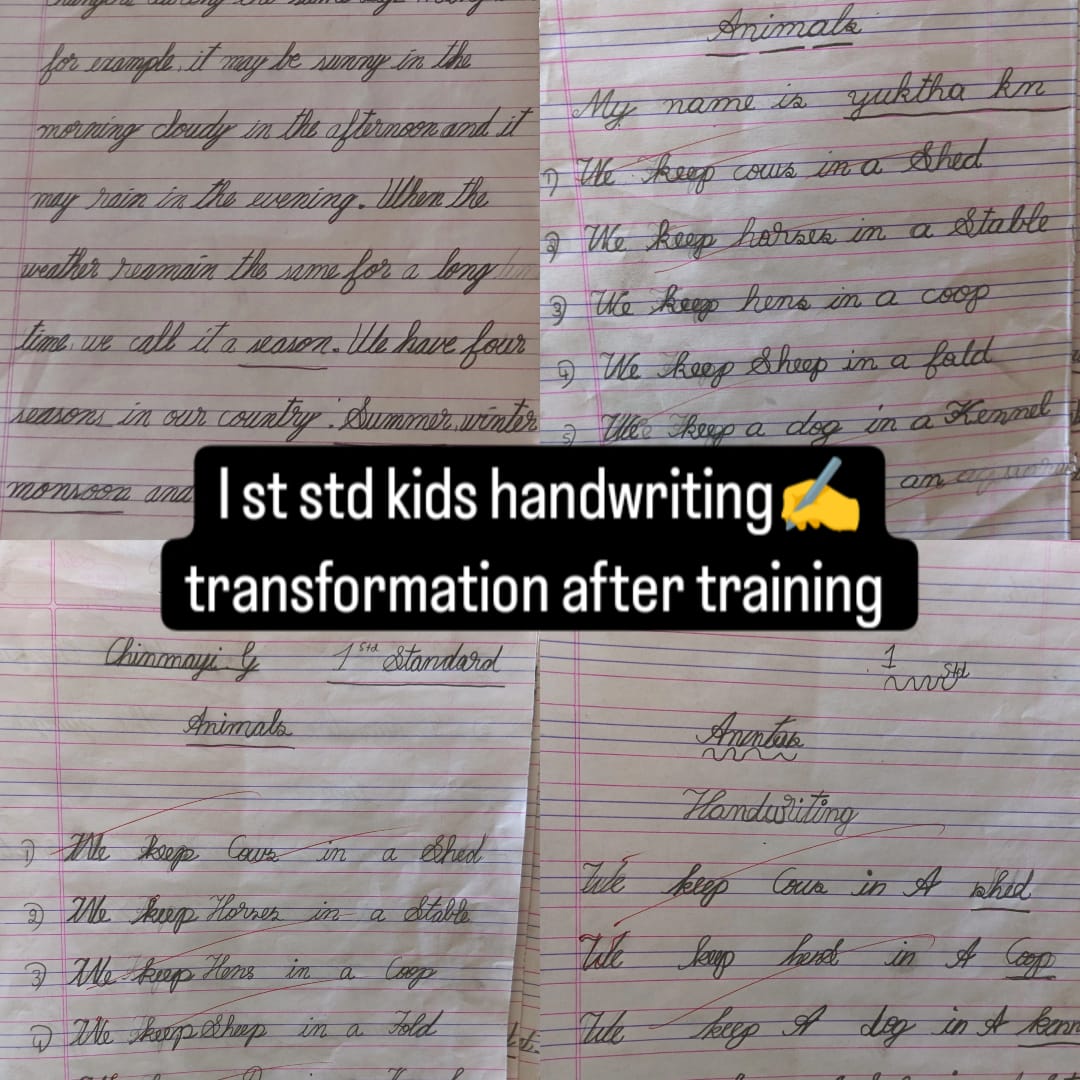 for example, it may be sunny in the
morning cloudy in the afternoon and it
may rain in the evening. When the
weather reamain the same for a long
time, we call it a season. We have four
seasons in our country : Summer, winter
monsoon and
Animals
My name is yuktha kn
1) We keep cows in a Shed
2) We keep horses in a Stable
3) We keep hens in a coop
4) We keep Sheep in a fold
5) We keep a dog in a Kennel
an
I st std kids handwriting✍️
transformation after training
Chinmayi G 1 std Standard
Animals
1) We keep Cows in a Shed
2) We keep Horses in a Stable
3) We keep Hens in a Coop
4) We keep Sheep in a Fold
1 std
Handwriting
We keep Cows in A shed
We keep in A Coop
We keep A dog in A kenn